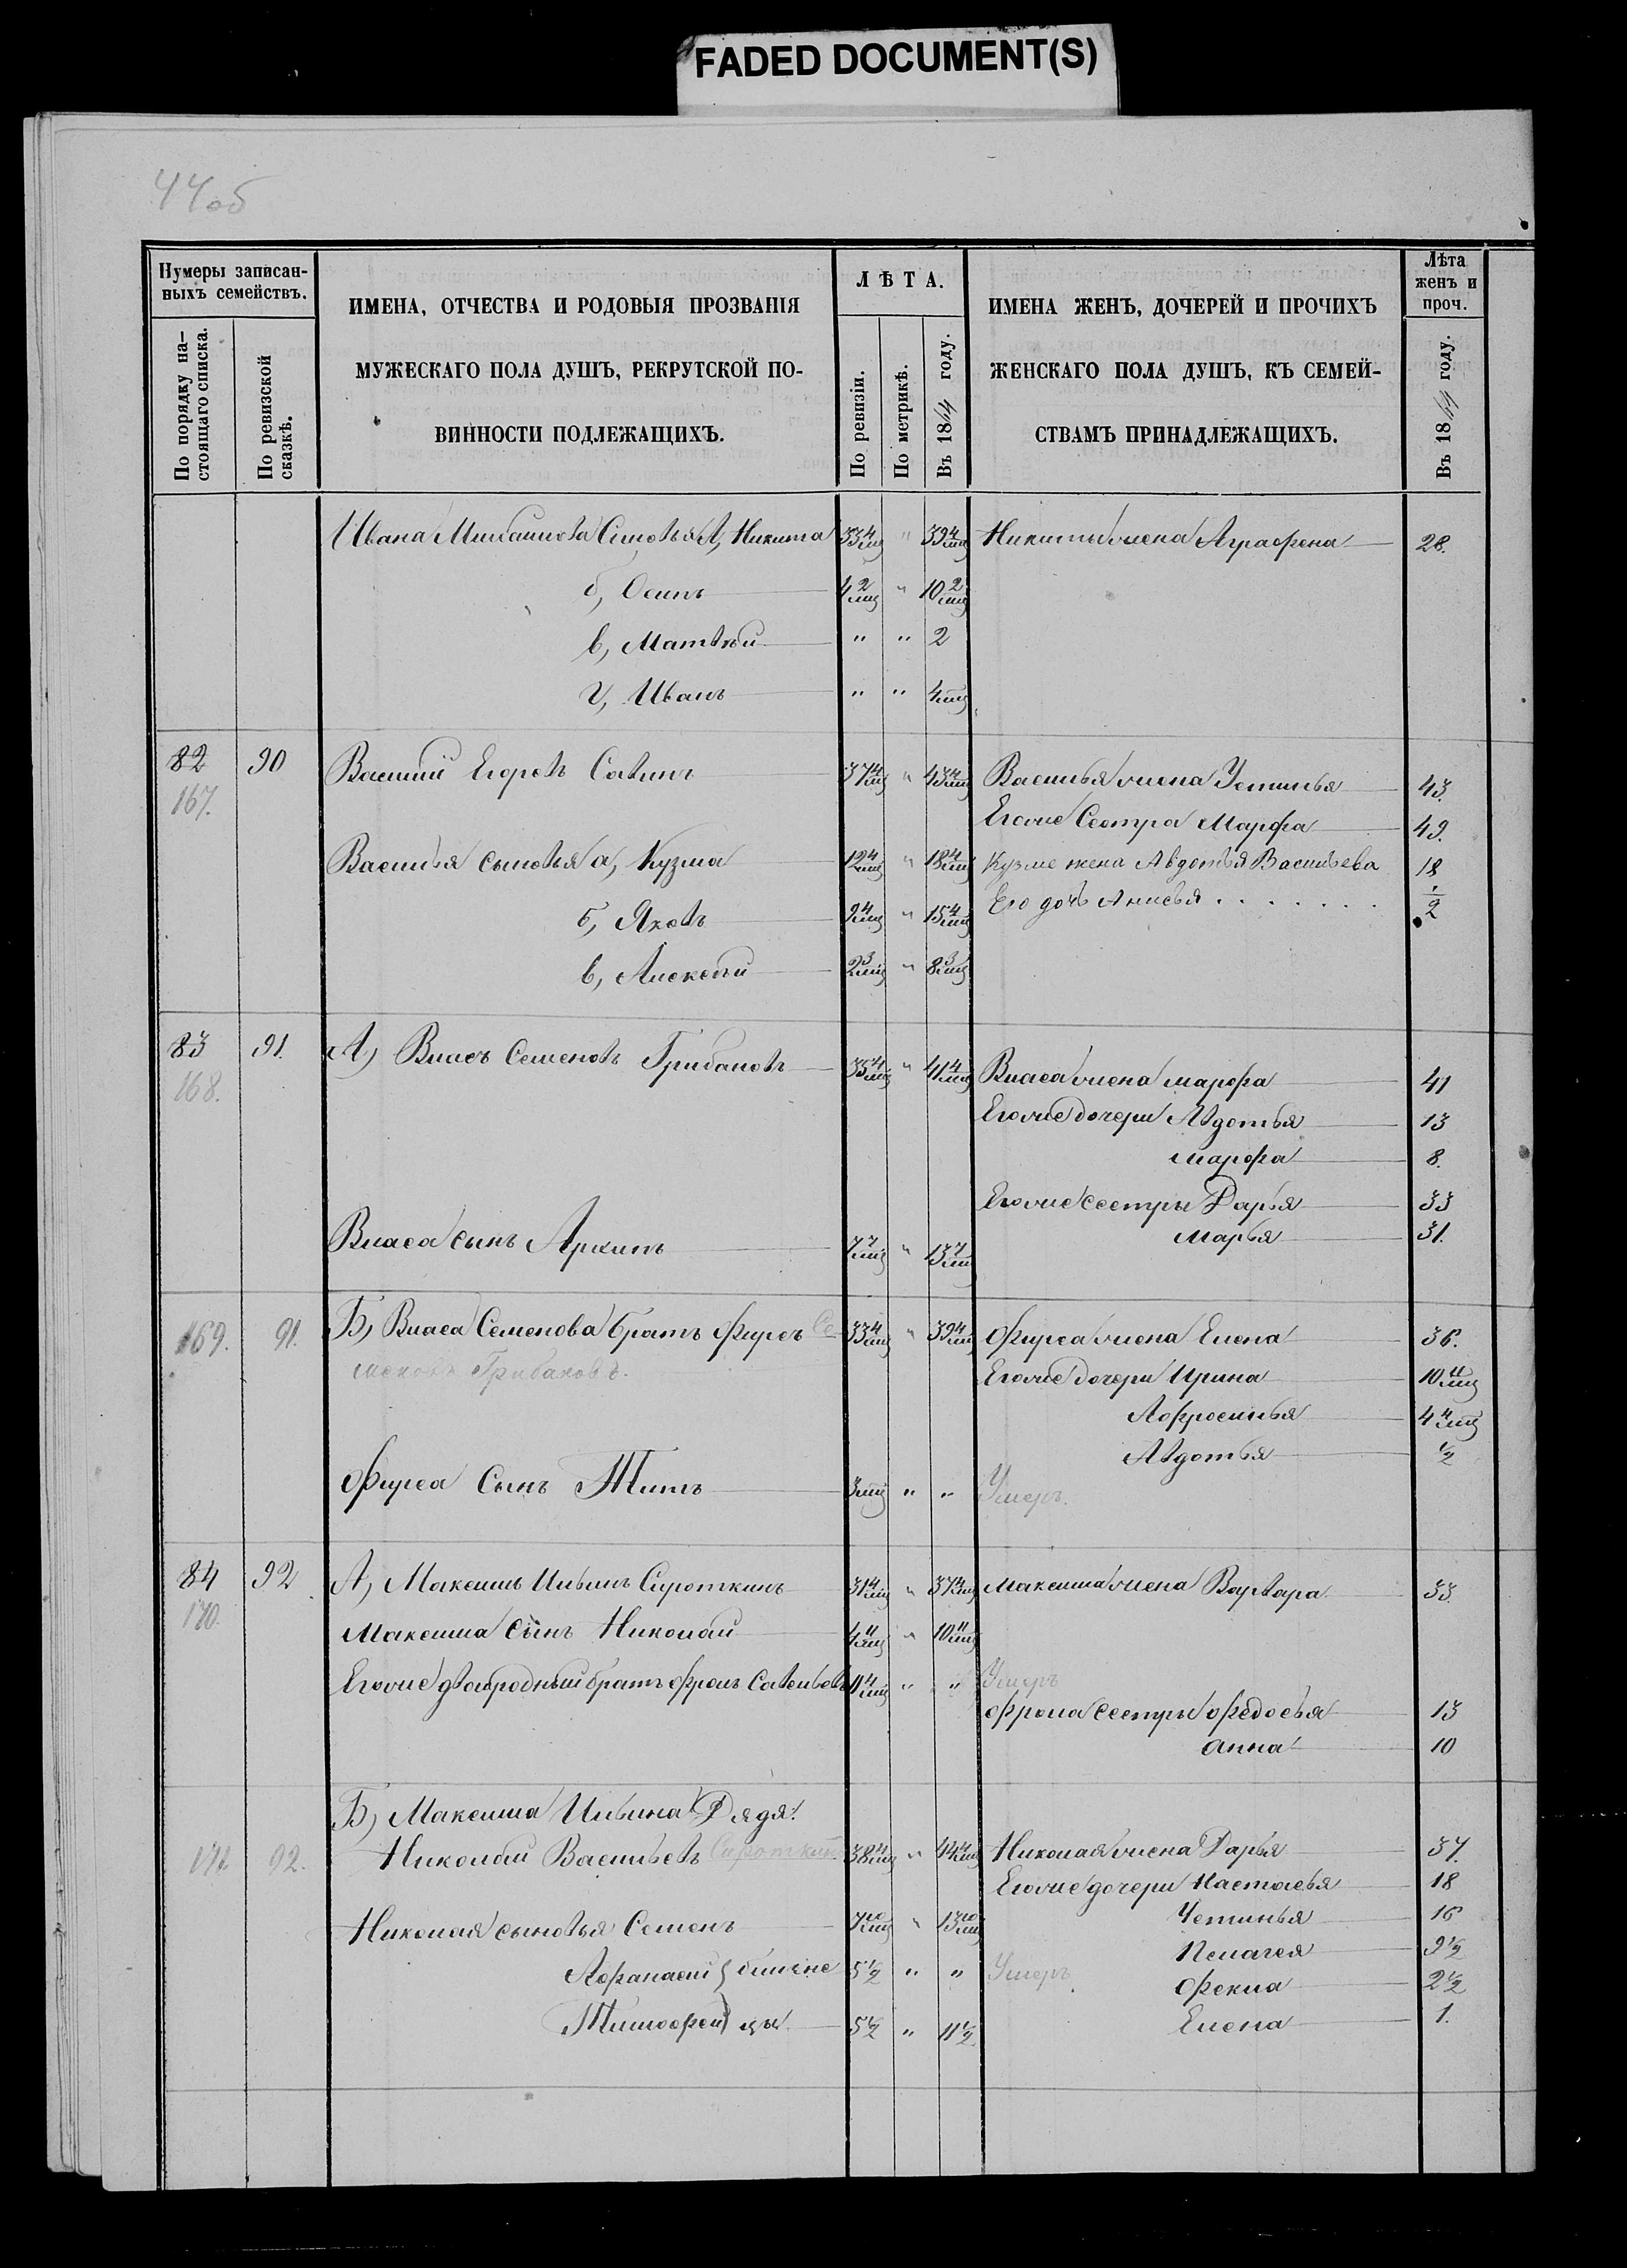 FADED DOCUMENT(S)
44об
Нумеры записан-
ныхъ семействъ.
По порядку на-
стоящаго списка.
По ревизской
сказкѣ.
ИМЕНА, ОТЧЕСТВА И РОДОВЫЯ ПРОЗВАНІЯ
МУЖЕСКАГО ПОЛА ДУШЪ, РЕКРУТСКОЙ ПО-
ВИННОСТИ ПОДЛЕЖАЩИХЪ.
ЛѢТА.
По ревизіи.
По метрикѣ.
Въ 1864 году.
ИМЕНА ЖЕНЪ, ДОЧЕРЕЙ И ПРОЧИХЪ
ЖЕНСКАГО ПОЛА ДУШЪ, КЪ СЕМЕЙ-
СТВАМЪ ПРИНАДЛЕЖАЩИХЪ.
Лѣта
женъ и
проч.
Въ 1864 году.
Ивана Михаилова Сыновья А, Никита 33 4 мц " 39 4 мц Никиты жена Аграфена 28.
б, Осипъ 4 2 мц " 10 2 мц
в, Матвѣй " " 2
г, Иванъ " " 4 мц
82 90 Василій Егоровъ Савинъ 37 4 мц " 43 4 мц Василья жена Устинья 43.
167. Его же Сестра Марфа 49.
Василья сыновья а, Кузма 12 4 мц " 18 4 мц Кузме жена Авдотья Васильева 18
б, Яковъ 9 4 мц " 15 4 мц Его дочь Анисья . . . . . . . 1/2
в, Алексѣй 2 3 мц " 8 3 мц
83 91. А, Власъ Семеновъ Грибановъ 35 4 мц " 41 4 мц Власа жена Марфа 41
168. Его же дочери Авдотья 13
Марфа 8.
Его же сестры Дарья 33
Власа сынъ Архипъ 7 7 мц " 13 7 мц Марья 31.
169. 91. Б, Власа Семенова братъ Фирсъ Се 33 4 мц " 39 4 мц Фирса жена Елена 36.
меновъ Грибановъ. Его же дочери Ирина 10 11 мц
Афросинья 4 4 мц
Авдотья 1/2
Фирса Сынъ Титъ 3 мц " " Умеръ.
84 92 А, Максимъ Ильинъ Сироткинъ 31 4 мц " 37 4 мц Максима жена Варвара 33.
170. Максима Сынъ Николай 4 11 мц " 10 11 мц
Его же двоюродный братъ Фролъ Савельевъ 11 4 мц " " Умеръ
Фрола сестры Федосья 13
Анна 10
Б, Максима Ильина Дядя.
171 92. Николай Васильевъ Сироткин 38 4 мц " 44 4 мц Николая жена Дарья 37.
Его же дочери Настасья 18
Николая сыновья Семенъ 7 10 мц " 13 10 мц Устинья 16
Пелагея 9 1/2
Афанасій } близне 5 1/2 " " Умеръ. Фекла 2 1/2
Тимофей } цы 5 1/2 " 11 1/2. Елена 1.